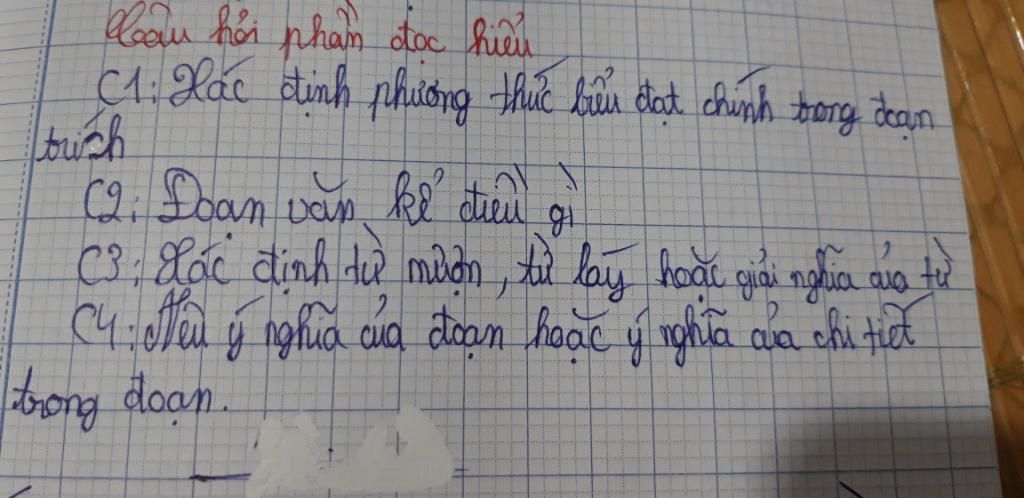 Câu hỏi phần đọc hiểu
C1: Xác định phương thức biểu đạt chính trong đoạn
trích
C2: Đoạn văn kể điều gì
C3: Xác định từ mượn, từ láy hoặc giải nghĩa của từ
C4: Nêu ý nghĩa của đoạn hoặc ý nghĩa của chi tiết
trong đoạn.